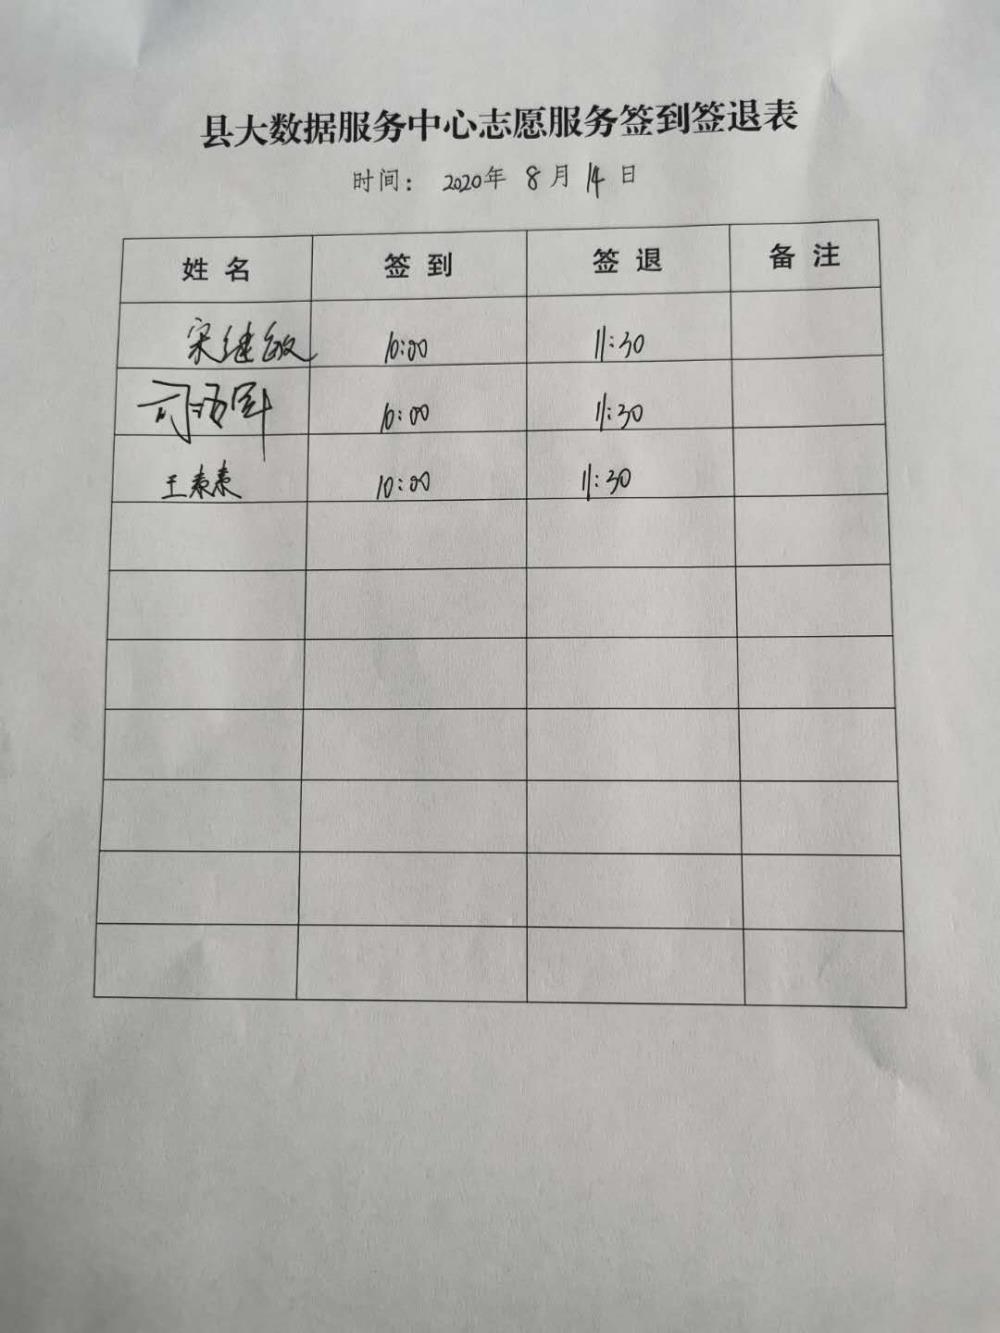 县大数据服务中心志愿服务签到签退表
时间： 2020年 8月 14日
姓名 签到 签退 备注
宋继敏 10:00 11:30
10:00 11:30
王素素 10:00 11:30